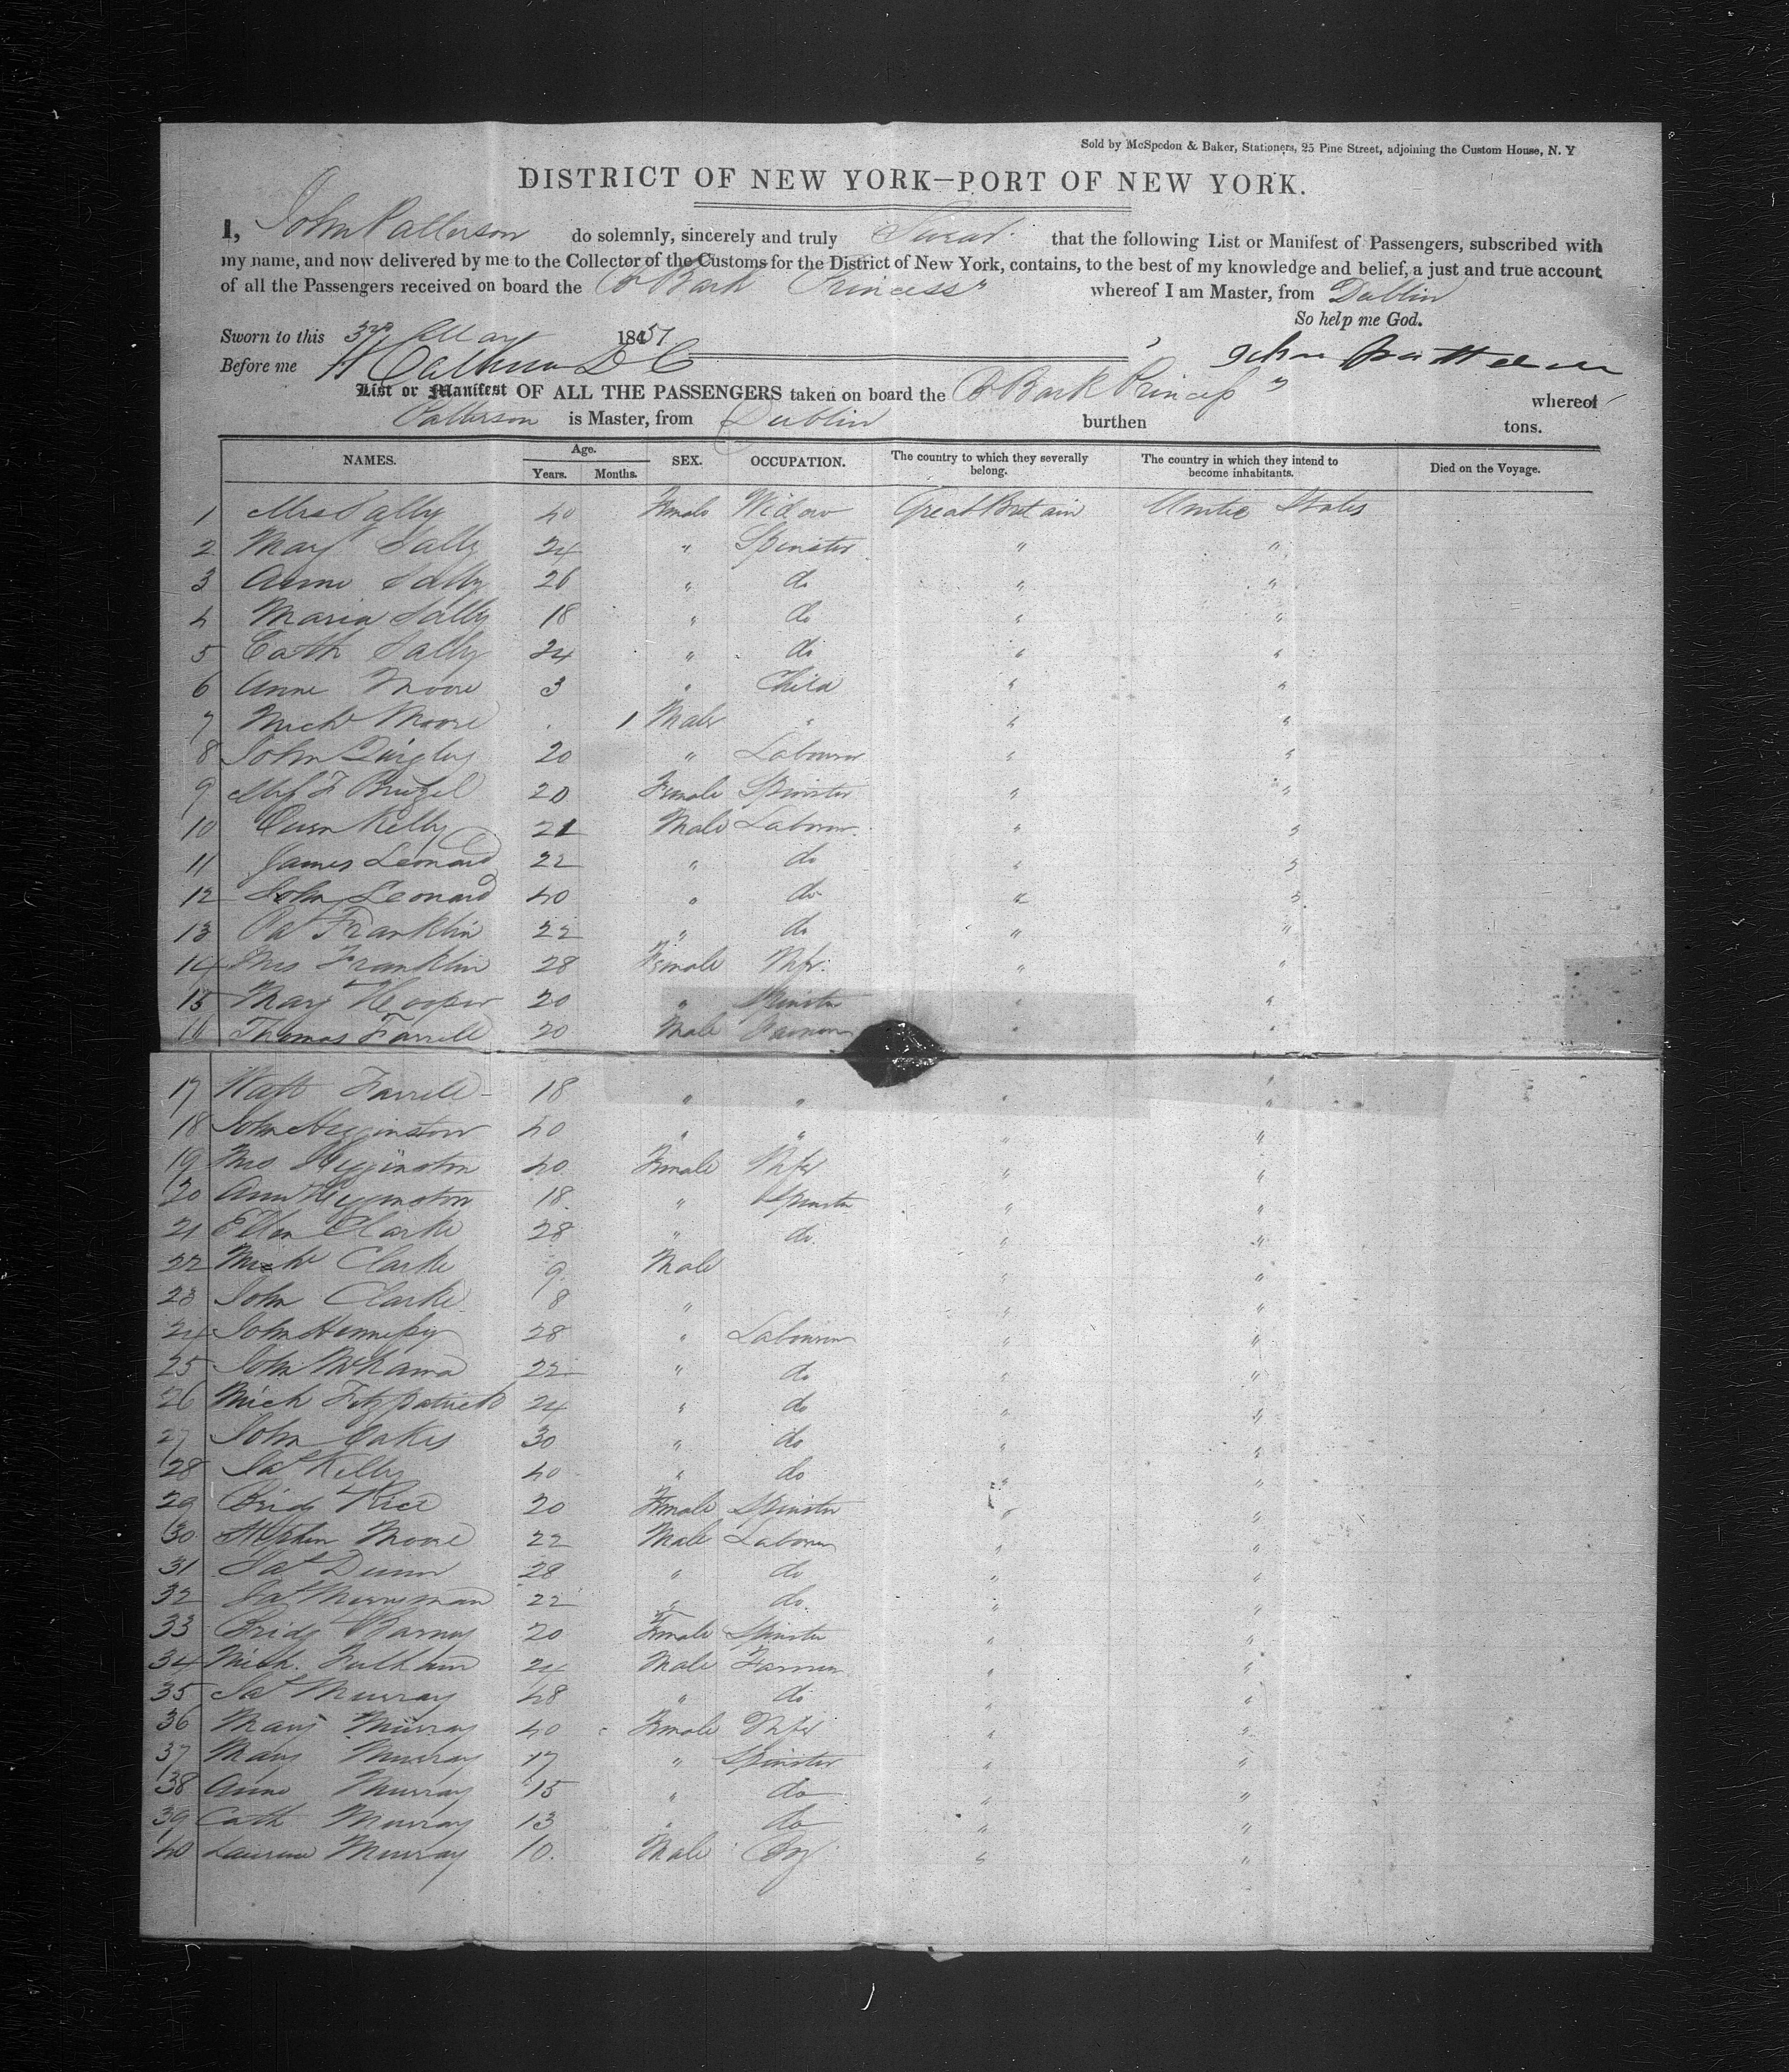 Sold by McSpedon & Baker, Stationers, 25 Pine Street, adjoining the Custom House, N. Y
DISTRICT OF NEW YORK—PORT OF NEW YORK.
I, John Patterson do solemnly, sincerely and truly Swear that the following List or Manifest of Passengers, subscribed with
my name, and now delivered by me to the Collector of the Customs for the District of New York, contains, to the best of my knowledge and belief, a just and true account
of all the Passengers received on board the Br Bark Princess" whereof I am Master, from Dublin
So help me God.
Sworn to this 3rd May 1851
Before me H Calhoun D C John Patterson
List or Manifest OF ALL THE PASSENGERS taken on board the Br Bark Princess" whereof
Patterson is Master, from Dublin burthen tons.
NAMES. Age. Years. Months. SEX. OCCUPATION. The country to which they severally belong. The country in which they intend to become inhabitants. Died on the Voyage.
1 Mrs Sally 40 Female Widow Great Britain United States
2 Mary Sally 24 " Spinster " "
3 Anne Sally 26 " do " "
4 Maria Sally 18 " do " "
5 Cath Sally 24 " do " "
6 Anne Moore 3 " Child " "
7 Michl Moore 1 Male " " "
8 John Quigley 20 " Labourer " "
9 F 20 Female Spinster " "
10 Owen Kelly 21 Male Labourer " "
11 James Leonard 22 " do " "
12 John Leonard 40 " do " "
13 Pat Franklin 22 " do " "
14 Mrs Franklin 28 Female Wife " "
15 Mary Hooper 20 " Spinster " "
16 Thomas Farrell 20 Male Farmer " "
17 Watt Farrell 18 " " " "
18 John Higginston 40 " " " "
19 Mrs Higginston 40 Female Wife " "
20 Ann Higginston 18 " Spinster " "
21 Ellen Clarke 28 " do " "
22 Michl Clarke 9 Male " "
23 John Clarke 8 " " "
24 John Hennessy 28 " Labourer " "
25 John 22 " do " "
26 Mich Fitzpatrick 24 " do " "
27 John Oakes 30 " do " "
28 Pat Kelly 40 " do " "
29 Bridg Rice 20 Female Spinster " "
30 Stephen Moore 22 Male Labourer " "
31 Pat Dunn 28 " do " "
32 Pat Merryman 22 " do " "
33 Bridg 20 Female Spinster " "
34 Mich. Fulham 24 Male Farmer " "
35 Pat Murray 48 " do " "
36 Mary Murray 40 Female Wife " "
37 Mary Murray 17 " Spinster " "
38 Anne Murray 15 " do " "
39 Cath Murray 13 " do " "
40 Laurence Murray 10 Male Boy " "